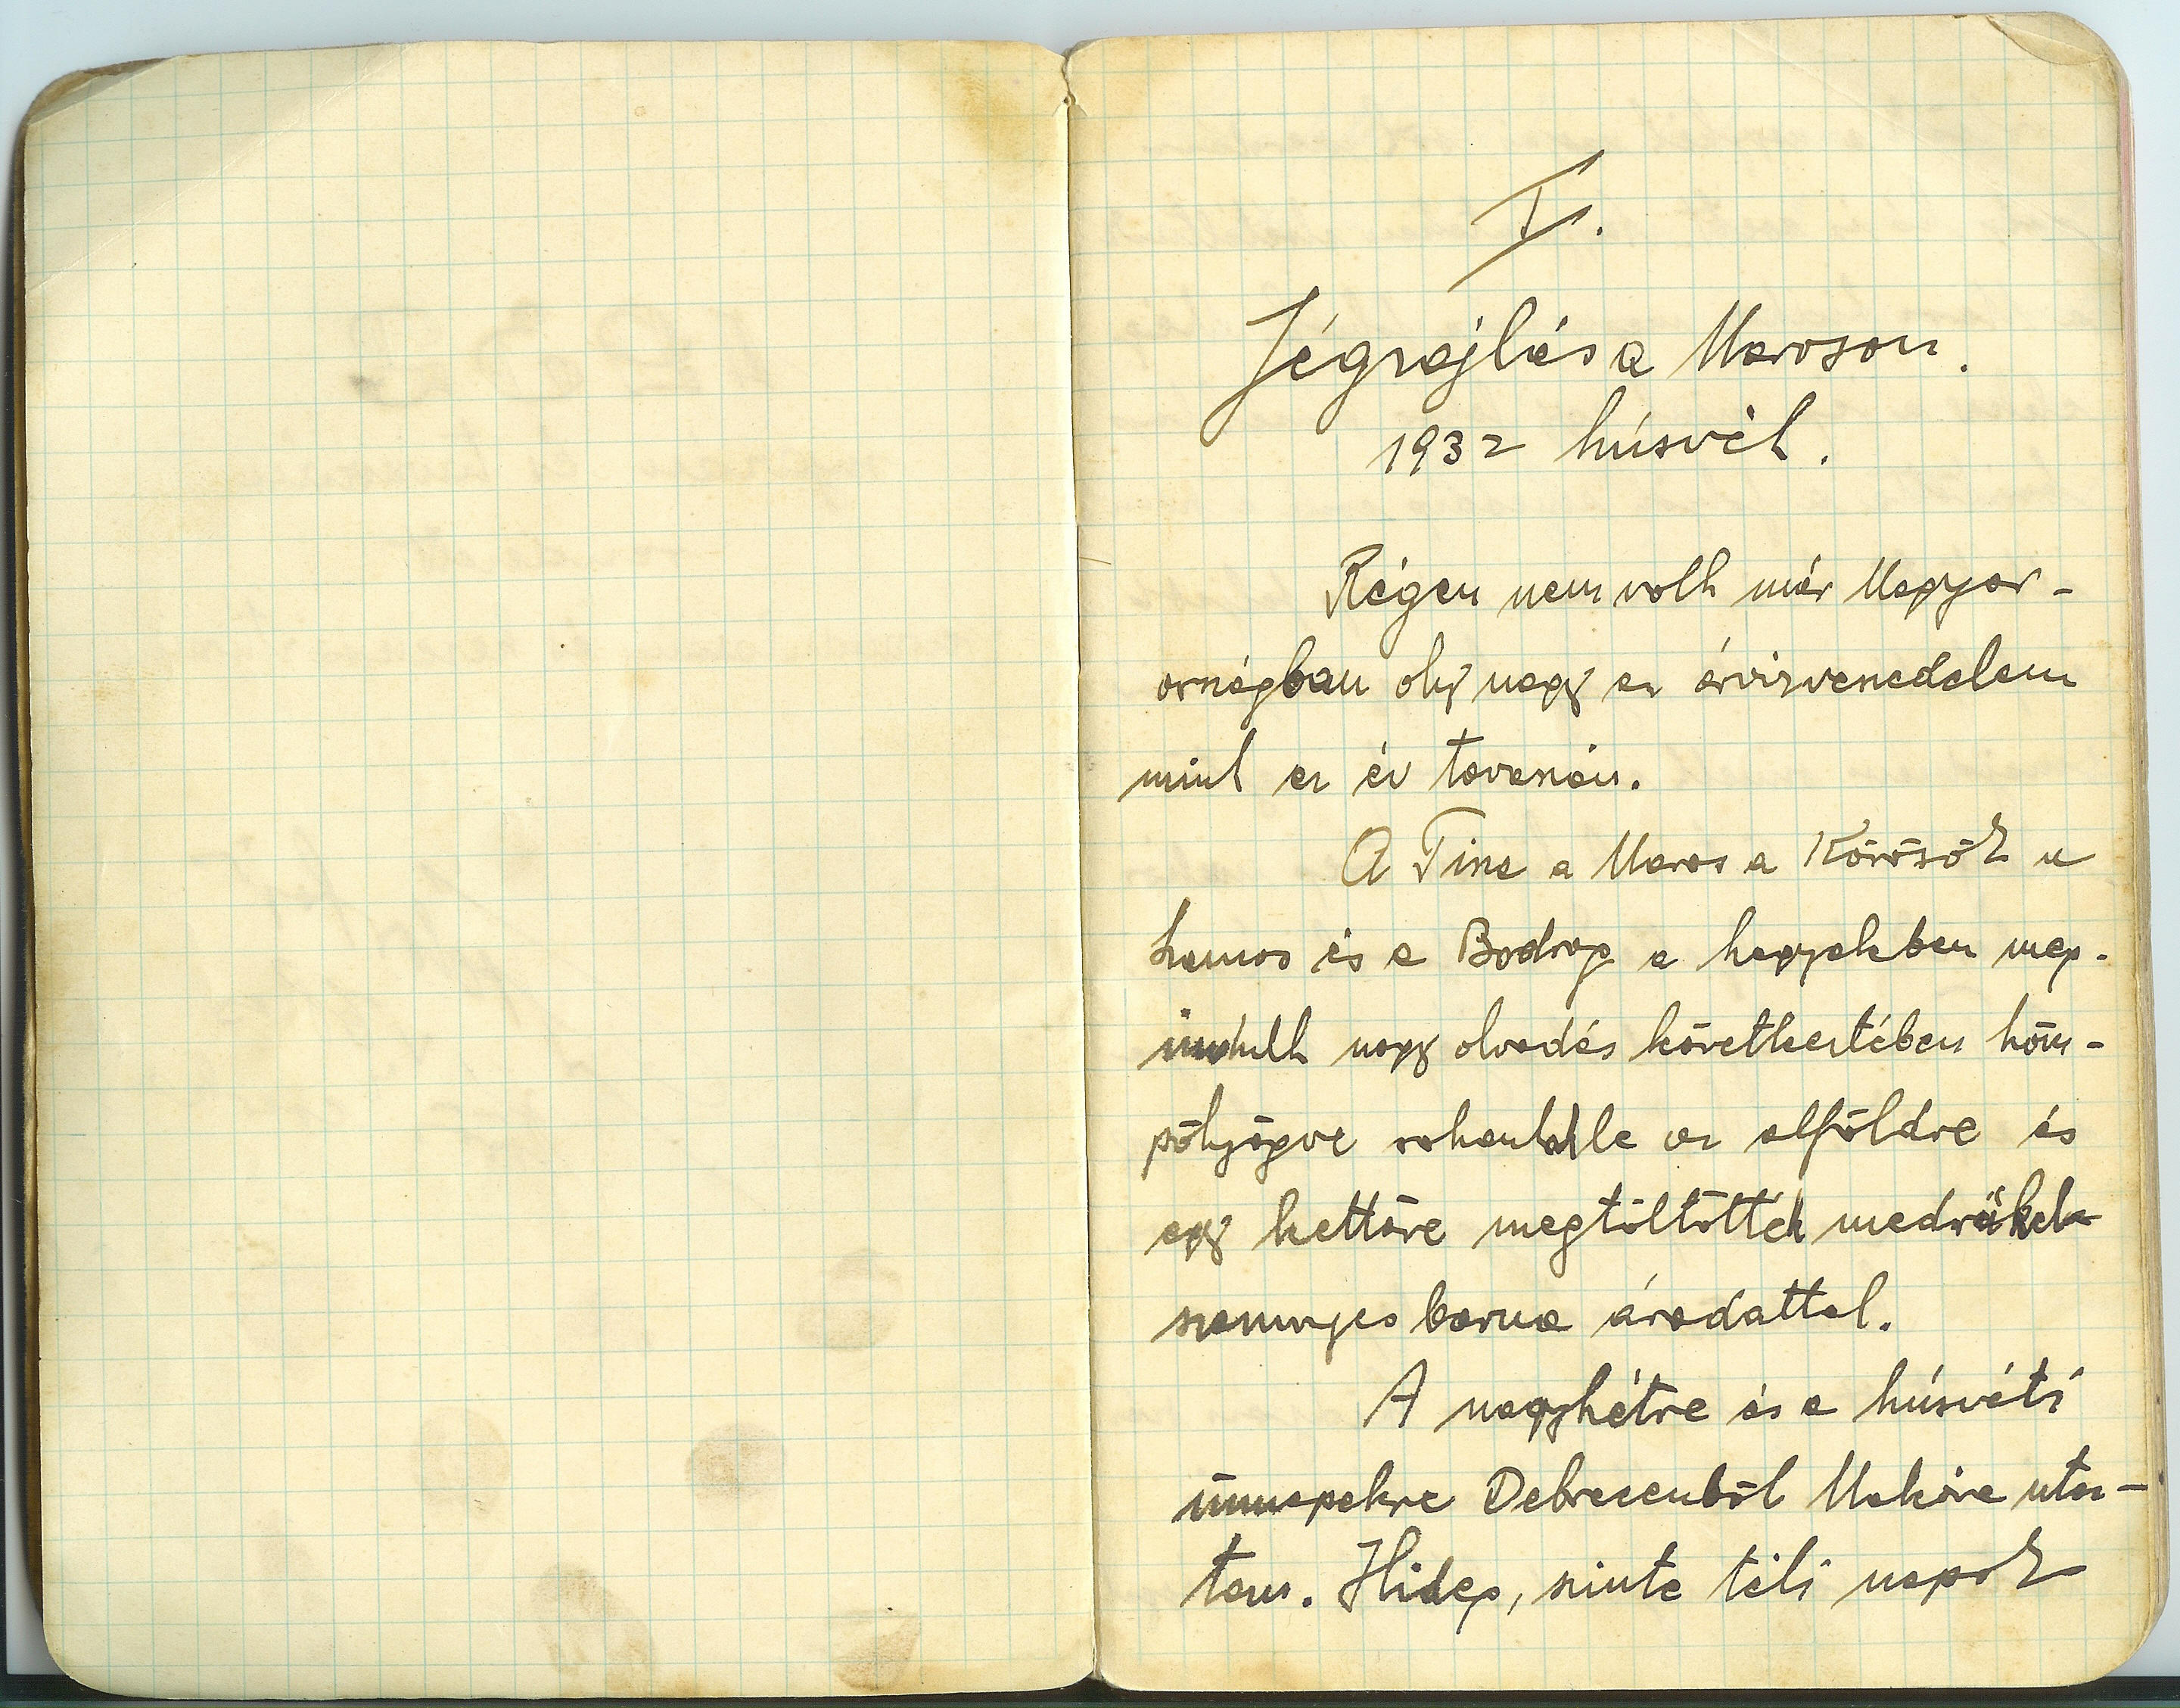 I.
Jégzajlás a Maroson.
1932 húsvét.
Régen nem volt már Magyar-
országban oly nagy az árvízveszedelem
mint ez év tavaszán.
A Tisza a Maros a Körösök a
Szamos és a Bodrog a hegyekben meg-
indult nagy olvadás következtében höm-
pölyögve rohantak le az alföldre és
egy kettőre megtöltötték medrüket
szennyes barna áradattal.
A nagyhétre és a húsvéti
ünnepekre Debrecenből Makóra utaz-
tam. Hideg, szinte téli napok